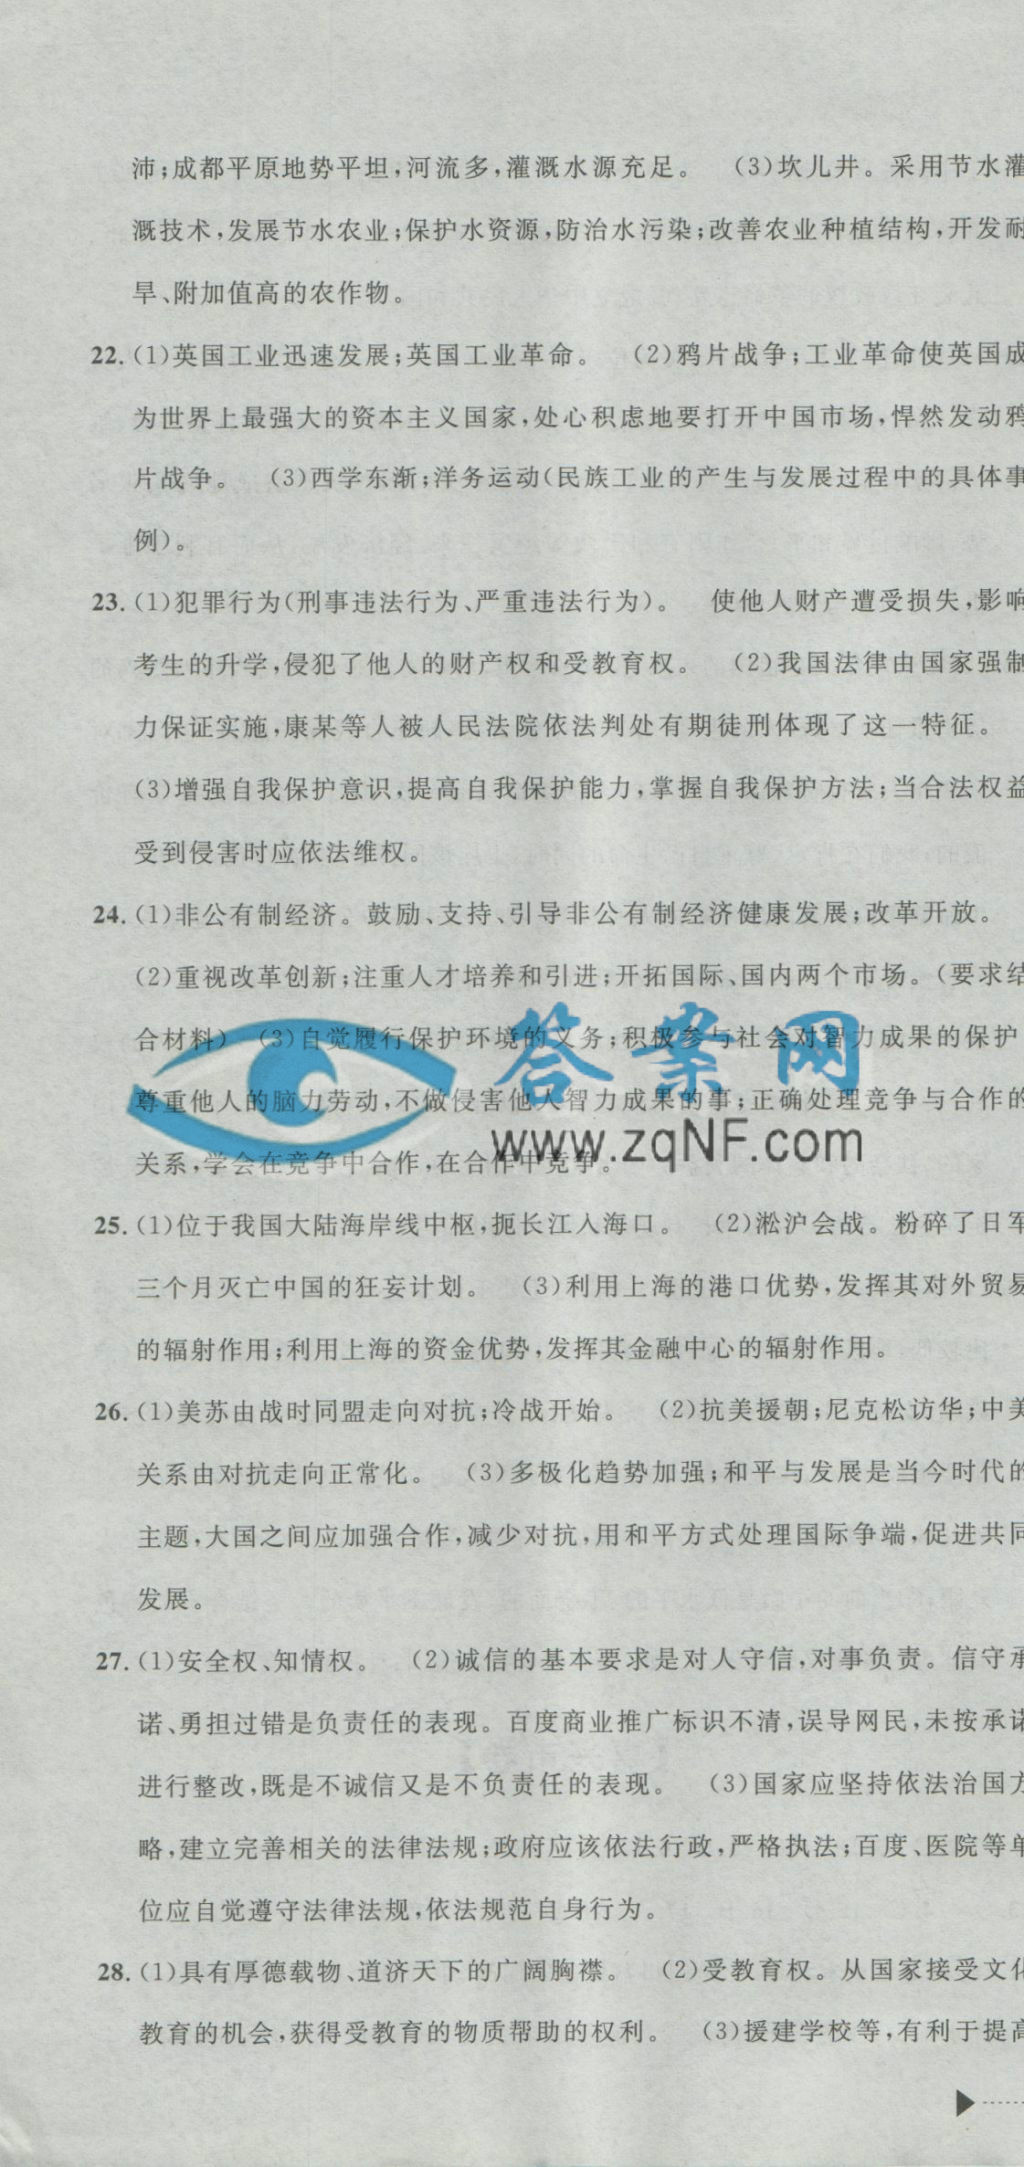 沛;成都平原地势平坦,河流多,灌溉水源充足。 (3)坎儿井。采用节水灌
溉技术,发展节水农业;保护水资源,防治水污染;改善农业种植结构,开发耐
旱、附加值高的农作物。
22. (1)英国工业迅速发展;英国工业革命。 (2)鸦片战争;工业革命使英国成
为世界上最强大的资本主义国家,处心积虑地要打开中国市场,悍然发动鸦
片战争。 (3)西学东渐;洋务运动(民族工业的产生与发展过程中的具体事
例)。
23. (1)犯罪行为(刑事违法行为、严重违法行为)。 使他人财产遭受损失,影响
考生的升学,侵犯了他人的财产权和受教育权。 (2)我国法律由国家强制
力保证实施,康某等人被人民法院依法判处有期徒刑体现了这一特征。
(3)增强自我保护意识,提高自我保护能力,掌握自我保护方法;当合法权益
受到侵害时应依法维权。
24. (1)非公有制经济。鼓励、支持、引导非公有制经济健康发展;改革开放。
(2)重视改革创新;注重人才培养和引进;开拓国际、国内两个市场。(要求结
合材料) (3)自觉履行保护环境的义务;积极参与社会对智力成果的保护,
尊重他人的脑力劳动,不做侵害他人智力成果的事;正确处理竞争与合作的
关系,学会在竞争中合作,在合作中竞争。
答案网
www.zqNF.com
25. (1)位于我国大陆海岸线中枢,扼长江入海口。 (2)淞沪会战。粉碎了日军
三个月灭亡中国的狂妄计划。 (3)利用上海的港口优势,发挥其对外贸易
的辐射作用;利用上海的资金优势,发挥其金融中心的辐射作用。
26. (1)美苏由战时同盟走向对抗;冷战开始。 (2)抗美援朝;尼克松访华;中美
关系由对抗走向正常化。 (3)多极化趋势加强;和平与发展是当今时代的
主题,大国之间应加强合作,减少对抗,用和平方式处理国际争端,促进共同
发展。
27. (1)安全权、知情权。 (2)诚信的基本要求是对人守信,对事负责。信守承
诺、勇担过错是负责任的表现。百度商业推广标识不清,误导网民,未按承诺
进行整改,既是不诚信又是不负责任的表现。 (3)国家应坚持依法治国方
略,建立完善相关的法律法规;政府应该依法行政,严格执法;百度、医院等单
位应自觉遵守法律法规,依法规范自身行为。
28. (1)具有厚德载物、道济天下的广阔胸襟。 (2)受教育权。从国家接受文化
教育的机会,获得受教育的物质帮助的权利。 (3)援建学校等,有利于提高